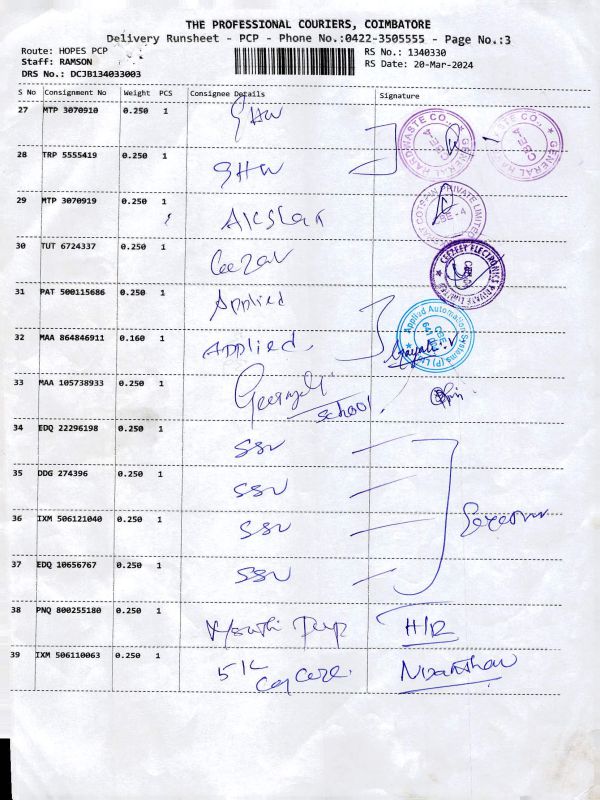 THE PROFESSIONAL COURIERS, COIMBATORE
Delivery Runsheet - PCP - Phone No.:0422-3505555 - Page No.:3
Route: HOPES PCP RS No.: 1340330
Staff: RAMSON RS Date: 20-Mar-2024
DRS No.: DCJB134033003
S No Consignment No Weight PCS Consignee Details Signature
27 MTP 3070910 0.250 1 GHW
28 TRP 5555419 0.250 1 GHW
29 MTP 3070919 0.250 1
30 TUT 6724337 0.250 1
31 PAT 500115686 0.250 1 Applied
32 MAA 864846911 0.160 1 Applied
33 MAA 105738933 0.250 1 school
34 EDQ 22296198 0.250 1 SSU
35 DDG 274396 0.250 1 SSU
36 IXM 506121040 0.250 1 SSU
37 EDQ 10656767 0.250 1 SSU
38 PNQ 800255180 0.250 1 H/R
39 IXM 506110063 0.250 1 5K Car care.